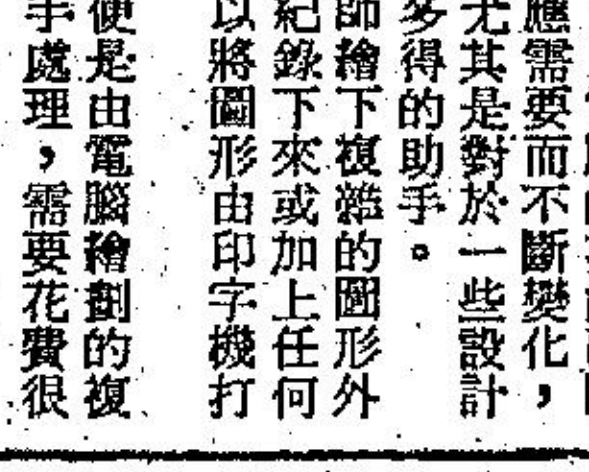 應需要而不斷變化，
尤其是對於一些設計
多得的助手。
師繪下複雜的圖形外
紀錄下來或加上任何
以將圖形由印字機打
便是由電腦繪劃的複
手處理，需要花費很